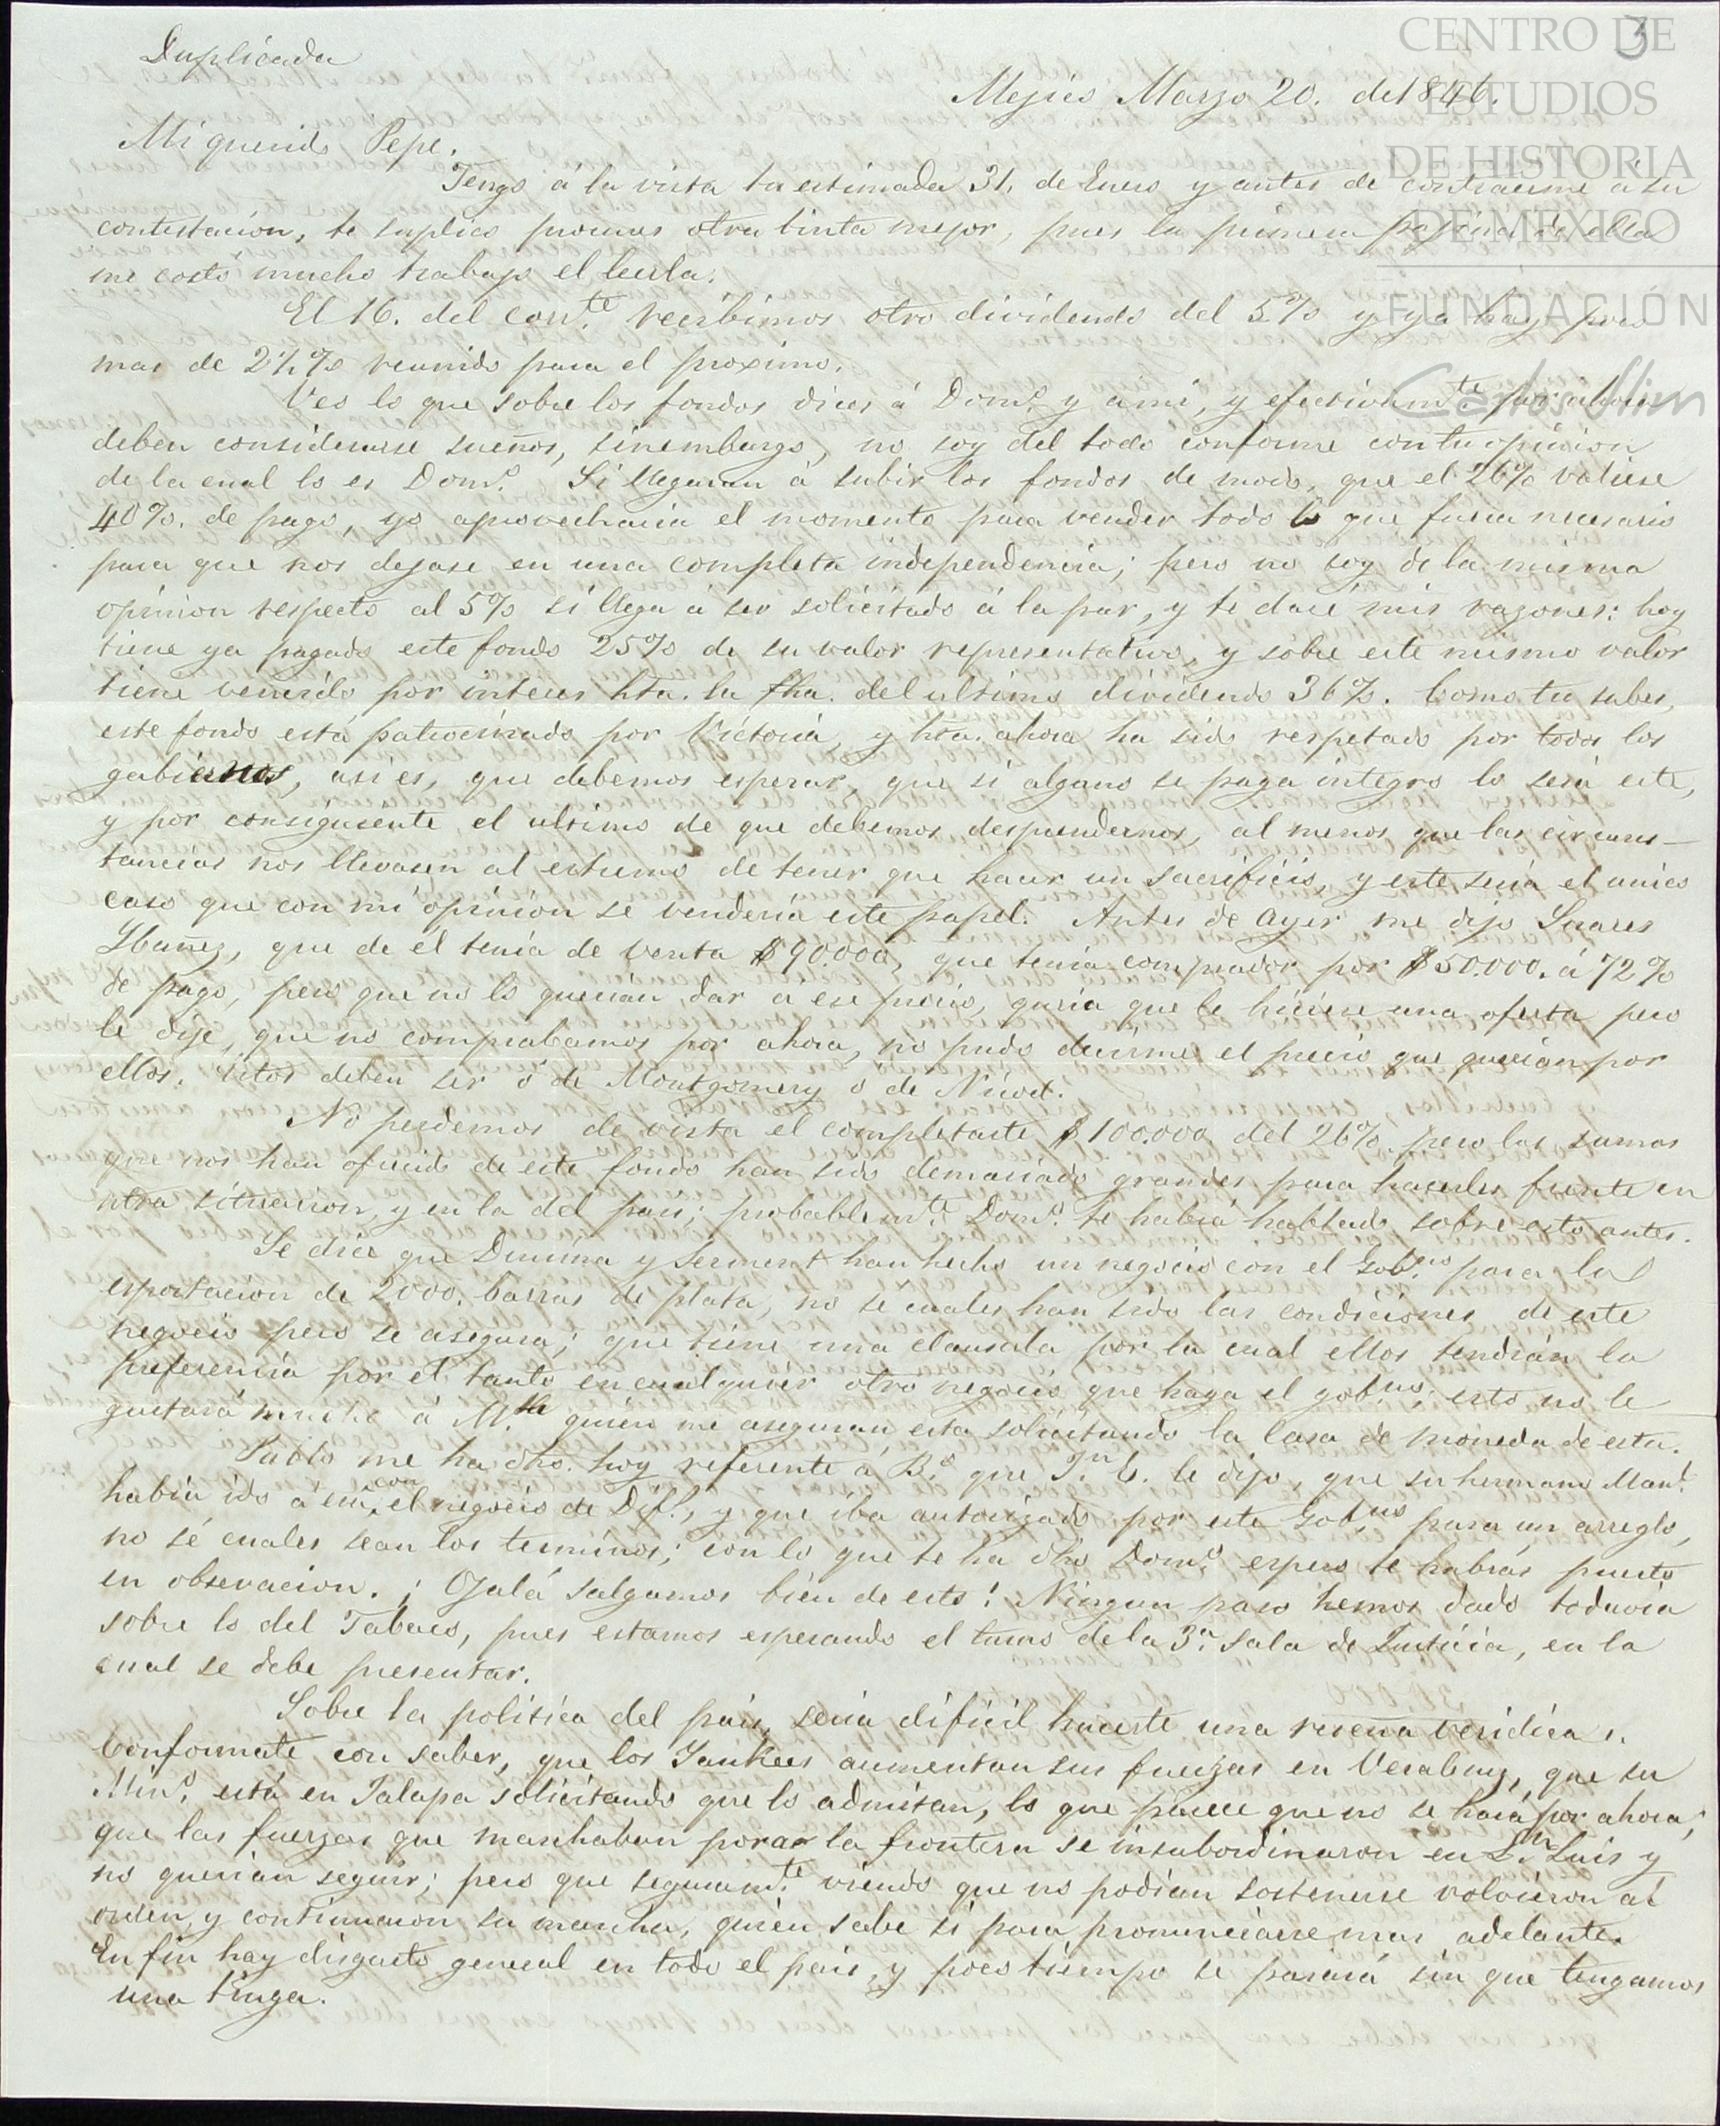 Duplicada
3
CENTRO DE
ESTUDIOS
DE HISTORIA
DE MÉXICO
FUNDACIÓN
Carlos Slim
Mejico Marzo 20. de 1846.
Mi querido Pepe.
Tengo á la vista tu estimada 31. de Enero y antes de contraerme á su
contestacion, te suplico procures otra tinta mejor, pues la primera pagina de ella
me costó mucho trabajo el leerla.
El 16. del corr.te recibimos otro dividendo del 5% y ya hay poco
mas de 2½% reunido para el proximo.
Veo lo que sobre los fondos dices á Dom.o y á mi, y efectivam.te por ahora
deben considerarse sueños, sinembargo, no soy del todo conforme con tu opinion
de la cual lo es Dom.o Si llegaran á subir los fondos de modo, que el 26% valiese
40%. de pago, yo aprovecharia el momento para vender todo lo que fuera necesario
para que nos dejase en una completa independencia; pero no soy de la misma
opinion respecto al 5% si llega á ser solicitado á la par, y te daré mis razones: hoy
tiene ya pagado este fondo 25% de su valor representativo, y sobre este mismo valor
tiene vencido por interes hta. la fha. del ultimo dividendo 36%. Como tu sabes,
este fondo está patrocinado por Victoria, y hta. ahora ha sido respetado por todos los
gobiernos, asi es, que debemos esperar, que si alguno se paga integro lo será este,
y por consiguiente el ultimo de que debemos desprendernos, al menos que las circuns-
tancias nos llevasen al estremo de tener que hacer un sacrificio, y este seria el unico
caso que con mi opinion se venderia este papel. Antes de ayer me dijo Suares
Ibañez, que de el tenia de venta $90.000, que tenia comprador por $50.000. á 72%
de pago, pero que no lo querian dar á ese precio, queria que le hiciese una oferta pero
le dije, que no comprabamos por ahora, no pudo decirme el precio que querian por
ellos. Estos deben ser ó de Montgomery ó de Nicod.
No perdemos de vista el completarte $100.000 del 26% pero las sumas
que nos han ofrecido de este fondo han sido demasiado grandes para hacerles frente en
ntra situacion, y en la del pais; probablem.te Dom.o te habrá hablado sobre esto antes.
Se dice que Drusina y Serment han hecho un negocio con el Gob.no para la
esportacion de 2000. barras de plata, no se cuales han sido las condiciones de este
negocio pero se asegura; que tiene una clausula por la cual ellos tendrán la
preferencia por el tanto en cualquier otro negocio que haga el gob.no; esto no le
gustará mucho á quien me aseguran esta solicitando la Casa de moneda de esta.
Pablo me ha dho. hoy referente á B.o que J.n C. le dijo, que su hermano Man.l
habia ido á esa, con el negocio de y que iba autorizado por este Gob.no para un arreglo,
no sé cuales sean los terminos; con lo que te ha dho Dom.o espero te habrás puesto
en observacion. ¡Ojalá salgamos bien de esto! Ningun paso hemos dado todavia
sobre lo del Tabaco, pues estamos esperando el turno de la 3.a Sala de Justicia, en la
cual se debe presentar.
Sobre la politica del pais, seria dificil hacerte una reseña veridica.
Conformate con saber, que los Yankees aumentan sus fuerzas en VeraCruz, que su
Min.o está en Jalapa solicitando que lo admitan, lo que parece que no se hará por ahora;
que las fuerzas que marchaban para la frontera se insubordinaron en S.n Luis y
no querian seguir; pero que seguram.te viendo que no podian sostenerse volvieron al
orden y continuaron su marcha, quien sabe si para pronunciarse mas adelante.
En fin hay disgusto general en todo el pais, y poco tiempo se pasará sin que tengamos
una tinga.